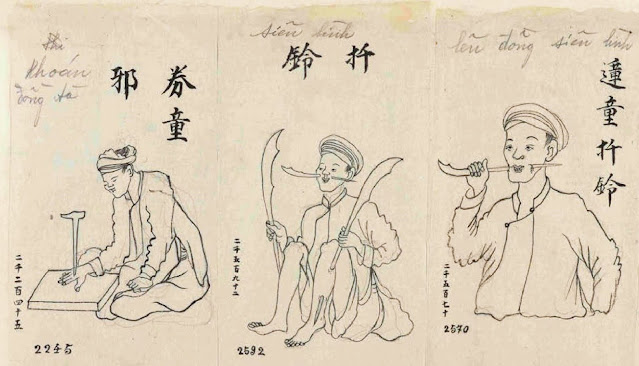 Khoán
đồng tà
券童
邪
二千二百四十五
2245
siên lình
扦
鈴
二千五百九十二
2592
lên đồng siên lình
童扦鈴
二千五百七十
2570